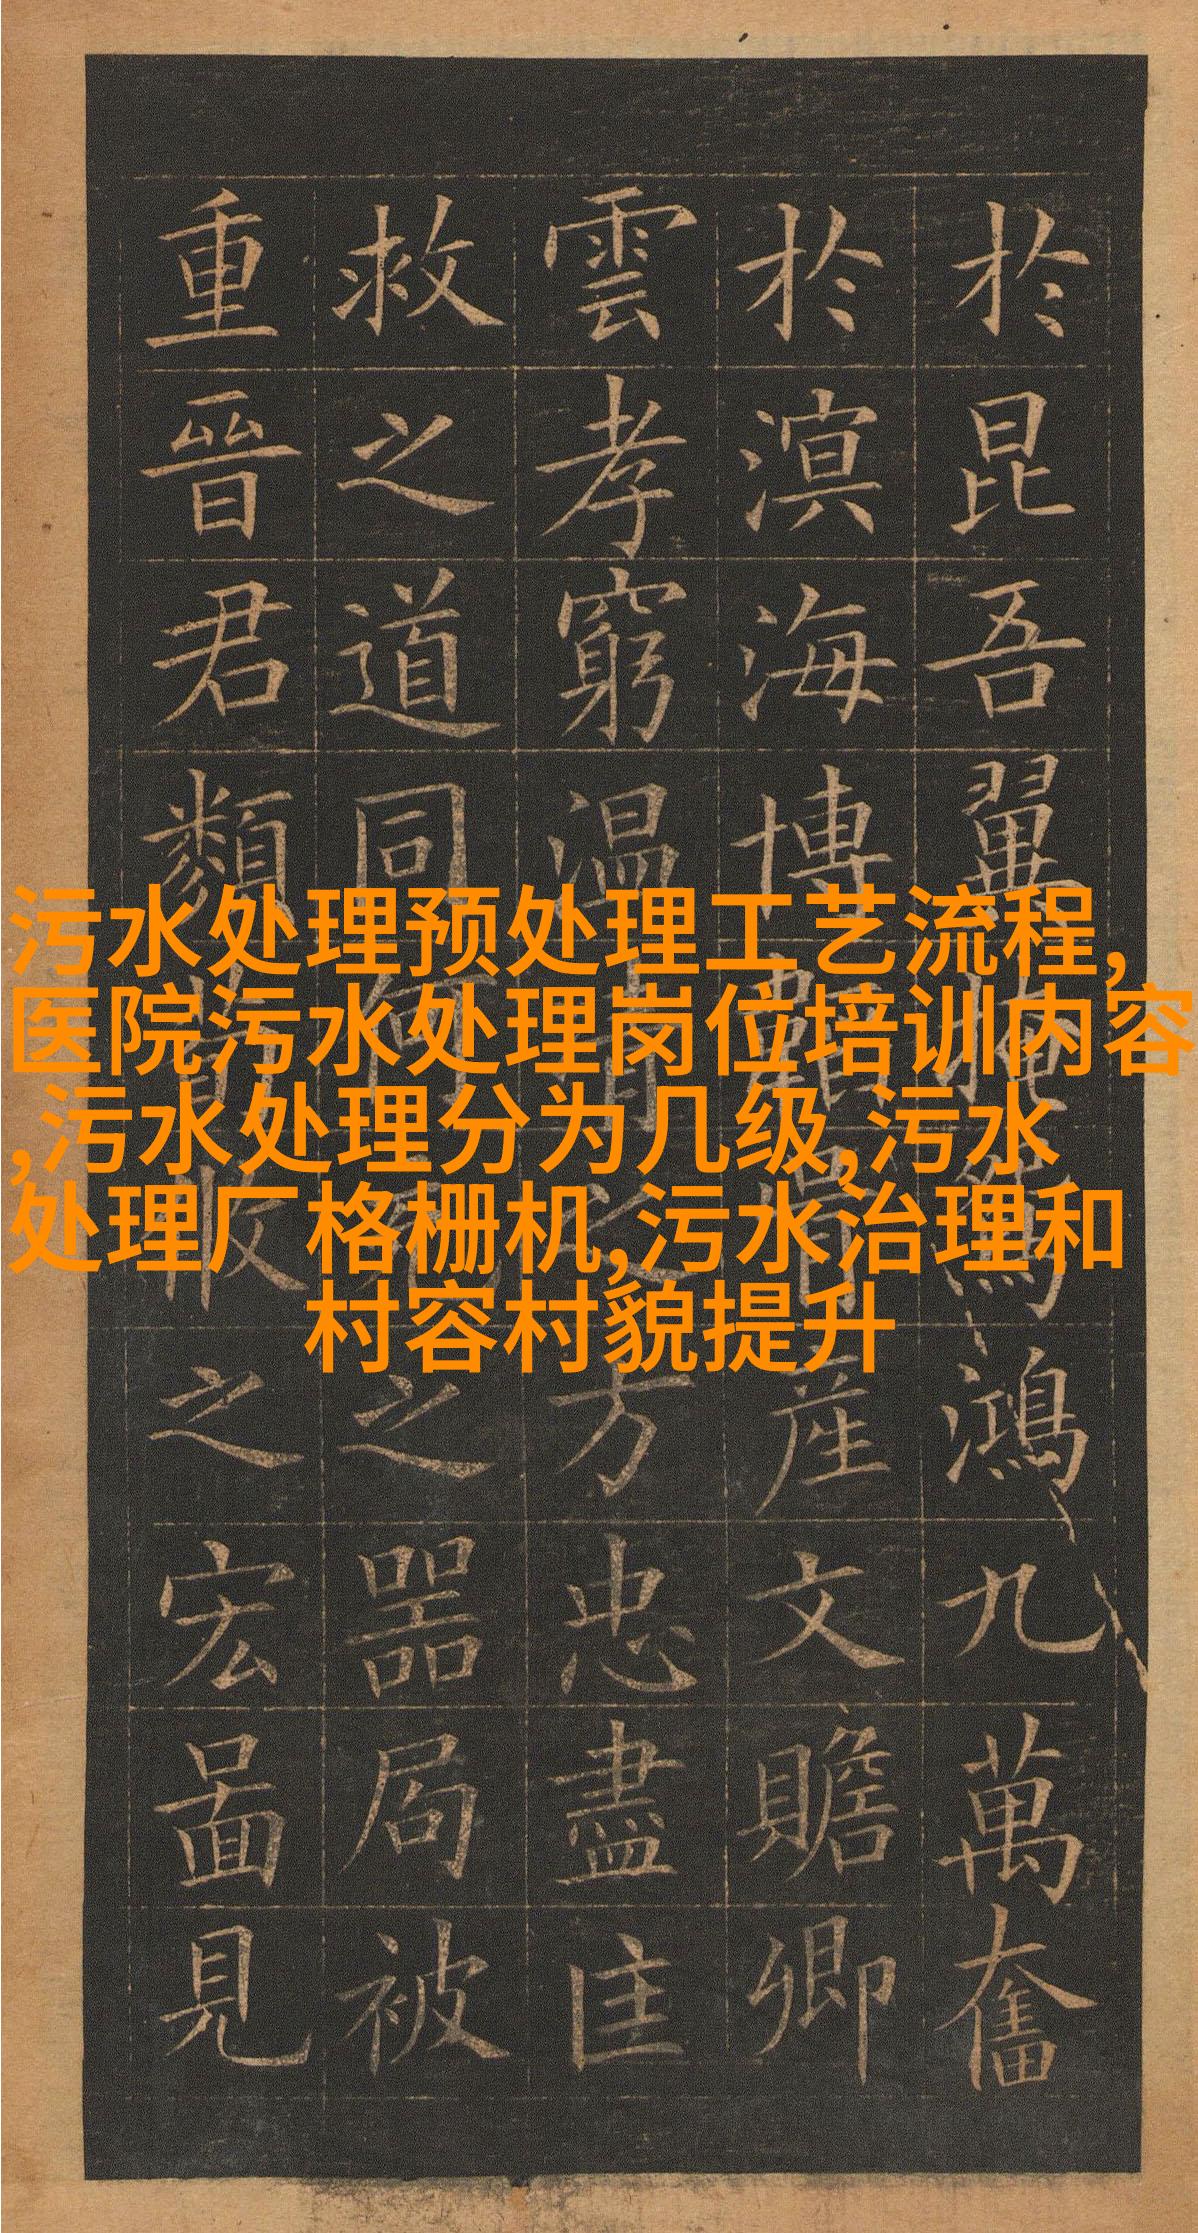 於昆吾翼掩鴻九萬奮
於溟海博產文贍卿
雲孝窮溫清之方忠盡匡
救之道同何之器局被
重晉君類之宏啚見
污水处理预处理工艺流程,
医院污水处理岗位培训内容
,污水处理分为几级,污水
处理厂格栅机,污水治理和
村容村貌提升